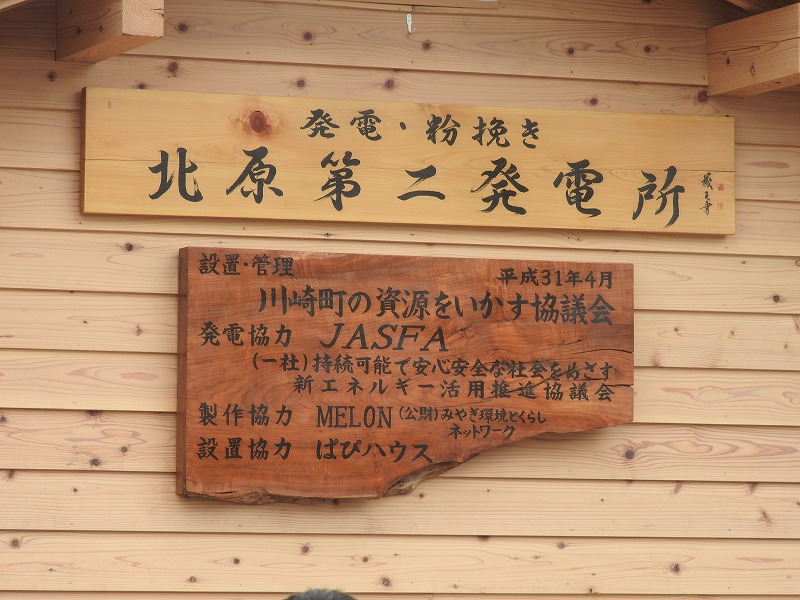 発電・粉挽き
北原第二発電所
設置・管理
平成31年4月
川崎町の資源をいかす協議会
発電協力 JASFA
(一社)持続可能で安心安全な社会をめざす
新エネルギー活用推進協議会
製作協力 MELON (公財)みやぎ環境とくらし
ネットワーク
設置協力 ぱぴハウス